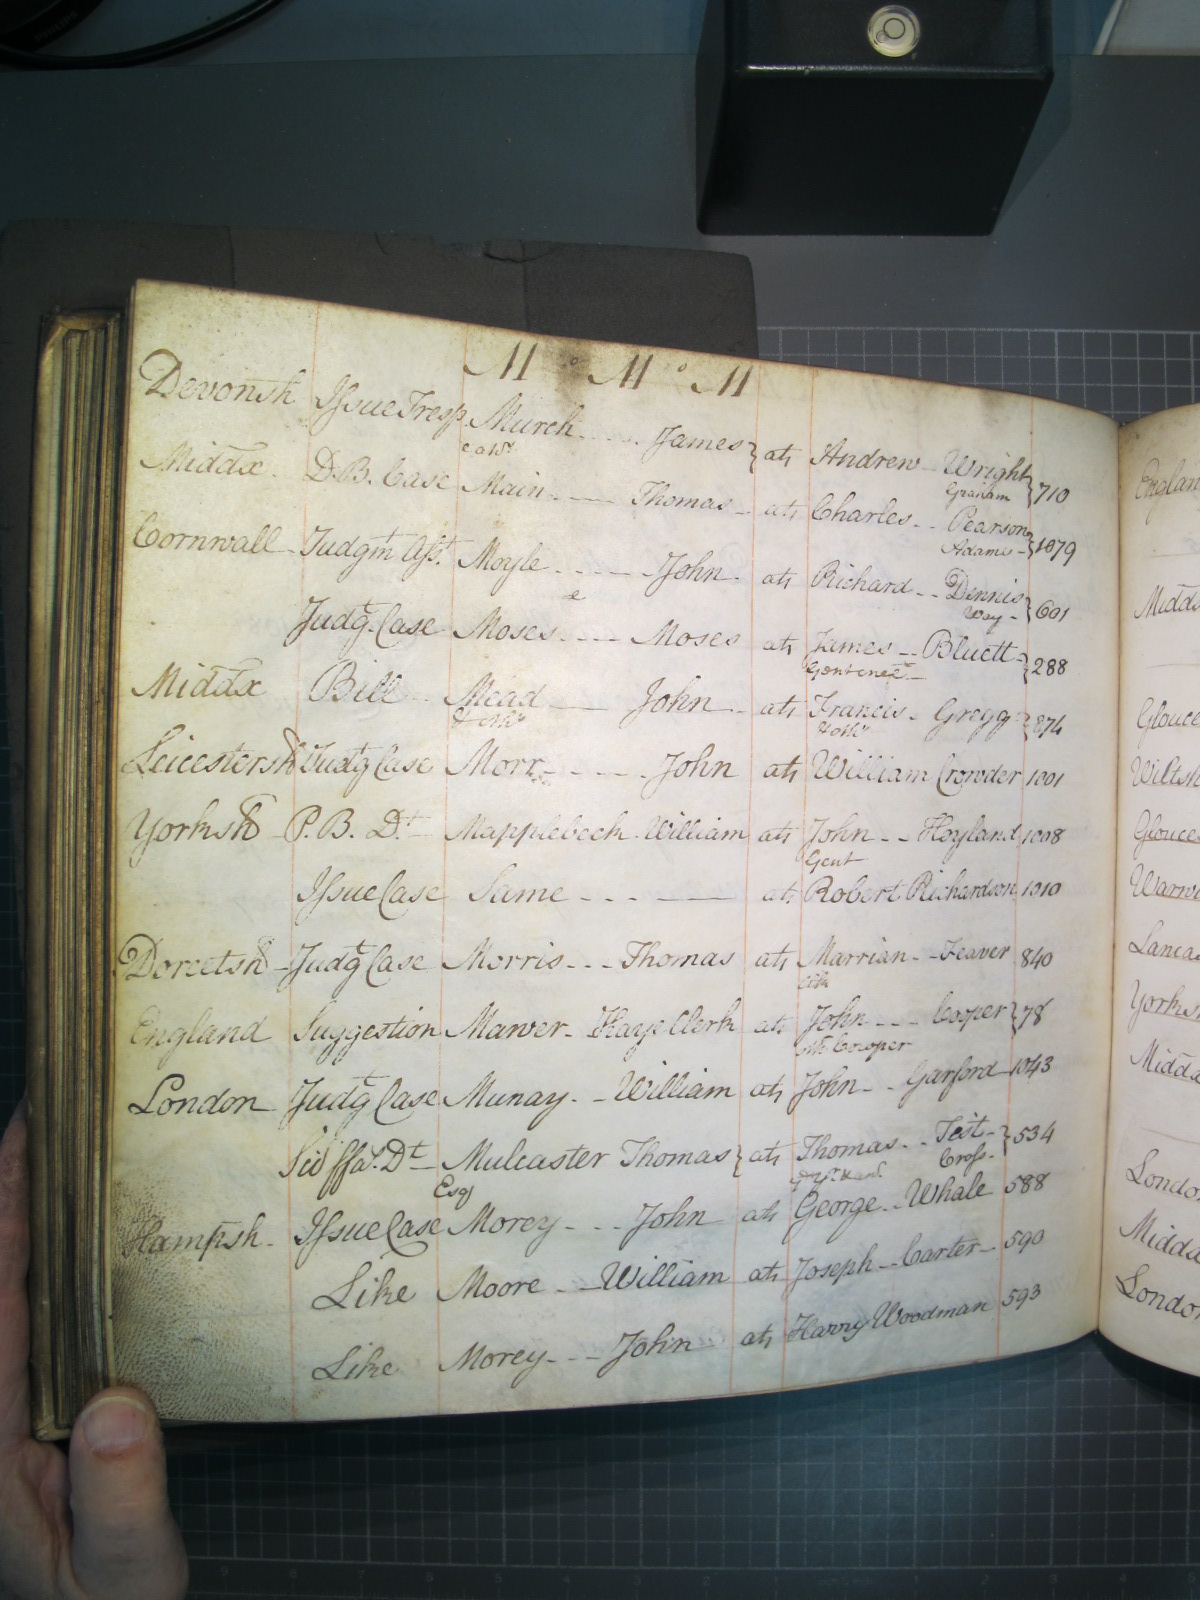 M o M o M
Devonsh Issue Tresp Murch James } at Andrew Wright } 710
Graham
Middx D.B. Case Main Thomas at Charles Pearson } 1079
Adams
Cornwall Judgmt Asst. Moyle John at Richard Dennis } 601
Way
Judgt. Case Moses Moses at James Bluett } 288
Middx Bill Mead John at Francis Gregg } 874
Leicestersh Judgt Case Morr John at William Crowder 1001
Yorksh P.B. Dt Mapplebeck William at John Hoyland 1008
Gent
Issue Case Same at Robert Richardson 1010
Dorcetsh Judgt Case Morris Thomas at Marrian Feaver 840
England Suggestion Marver Haye Clerk at John Cooper } 78
Cowper
London Judgt Case Munay William at John Garford 1043
Sci ffas. Dt Mulcaster Thomas } at Thomas Test } 534
Esq Cross
Hampsh Issue Case Morey John at George Whale 588
Like Moore William at Joseph Carter 590
Like Morey John at Harry Woodman 593
Englan
Midd
Glouce
Wiltsh
Glouce
Warwi
Lanca
Yorks
Midd
Londo
Midd
Londo